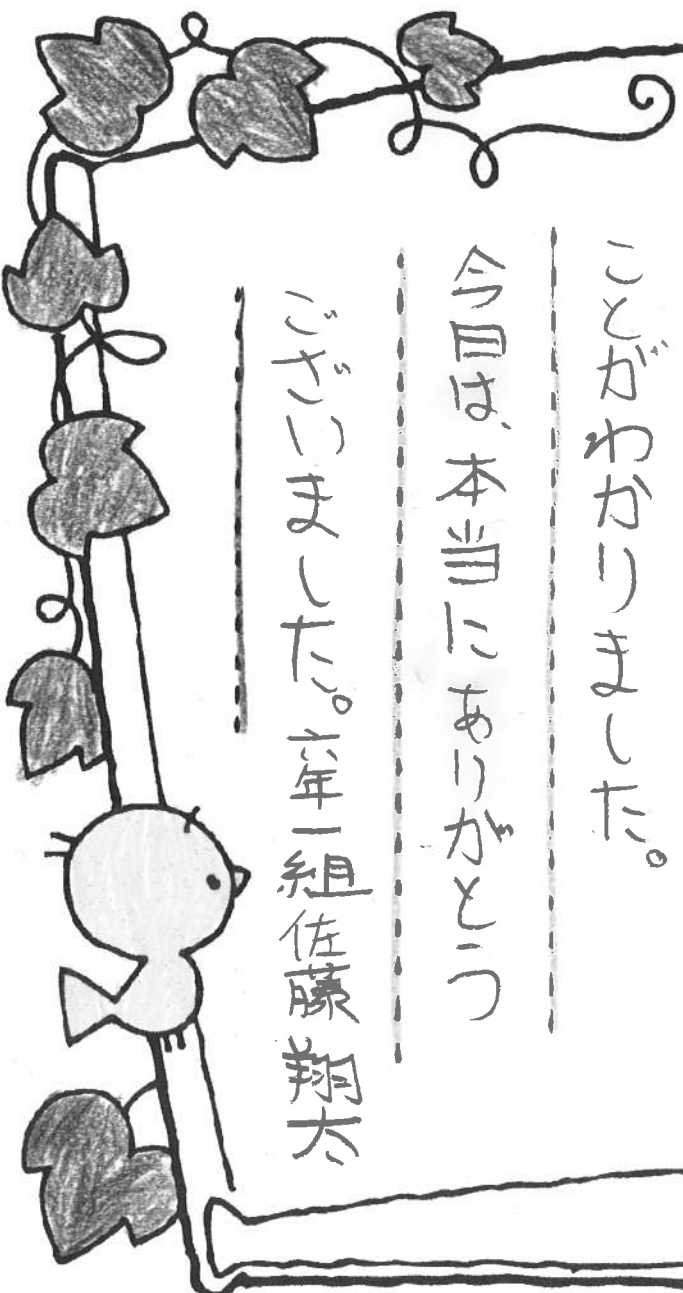 ことがわかりました。
今日は、本当にありがとう
ございました。六年一組佐藤翔太